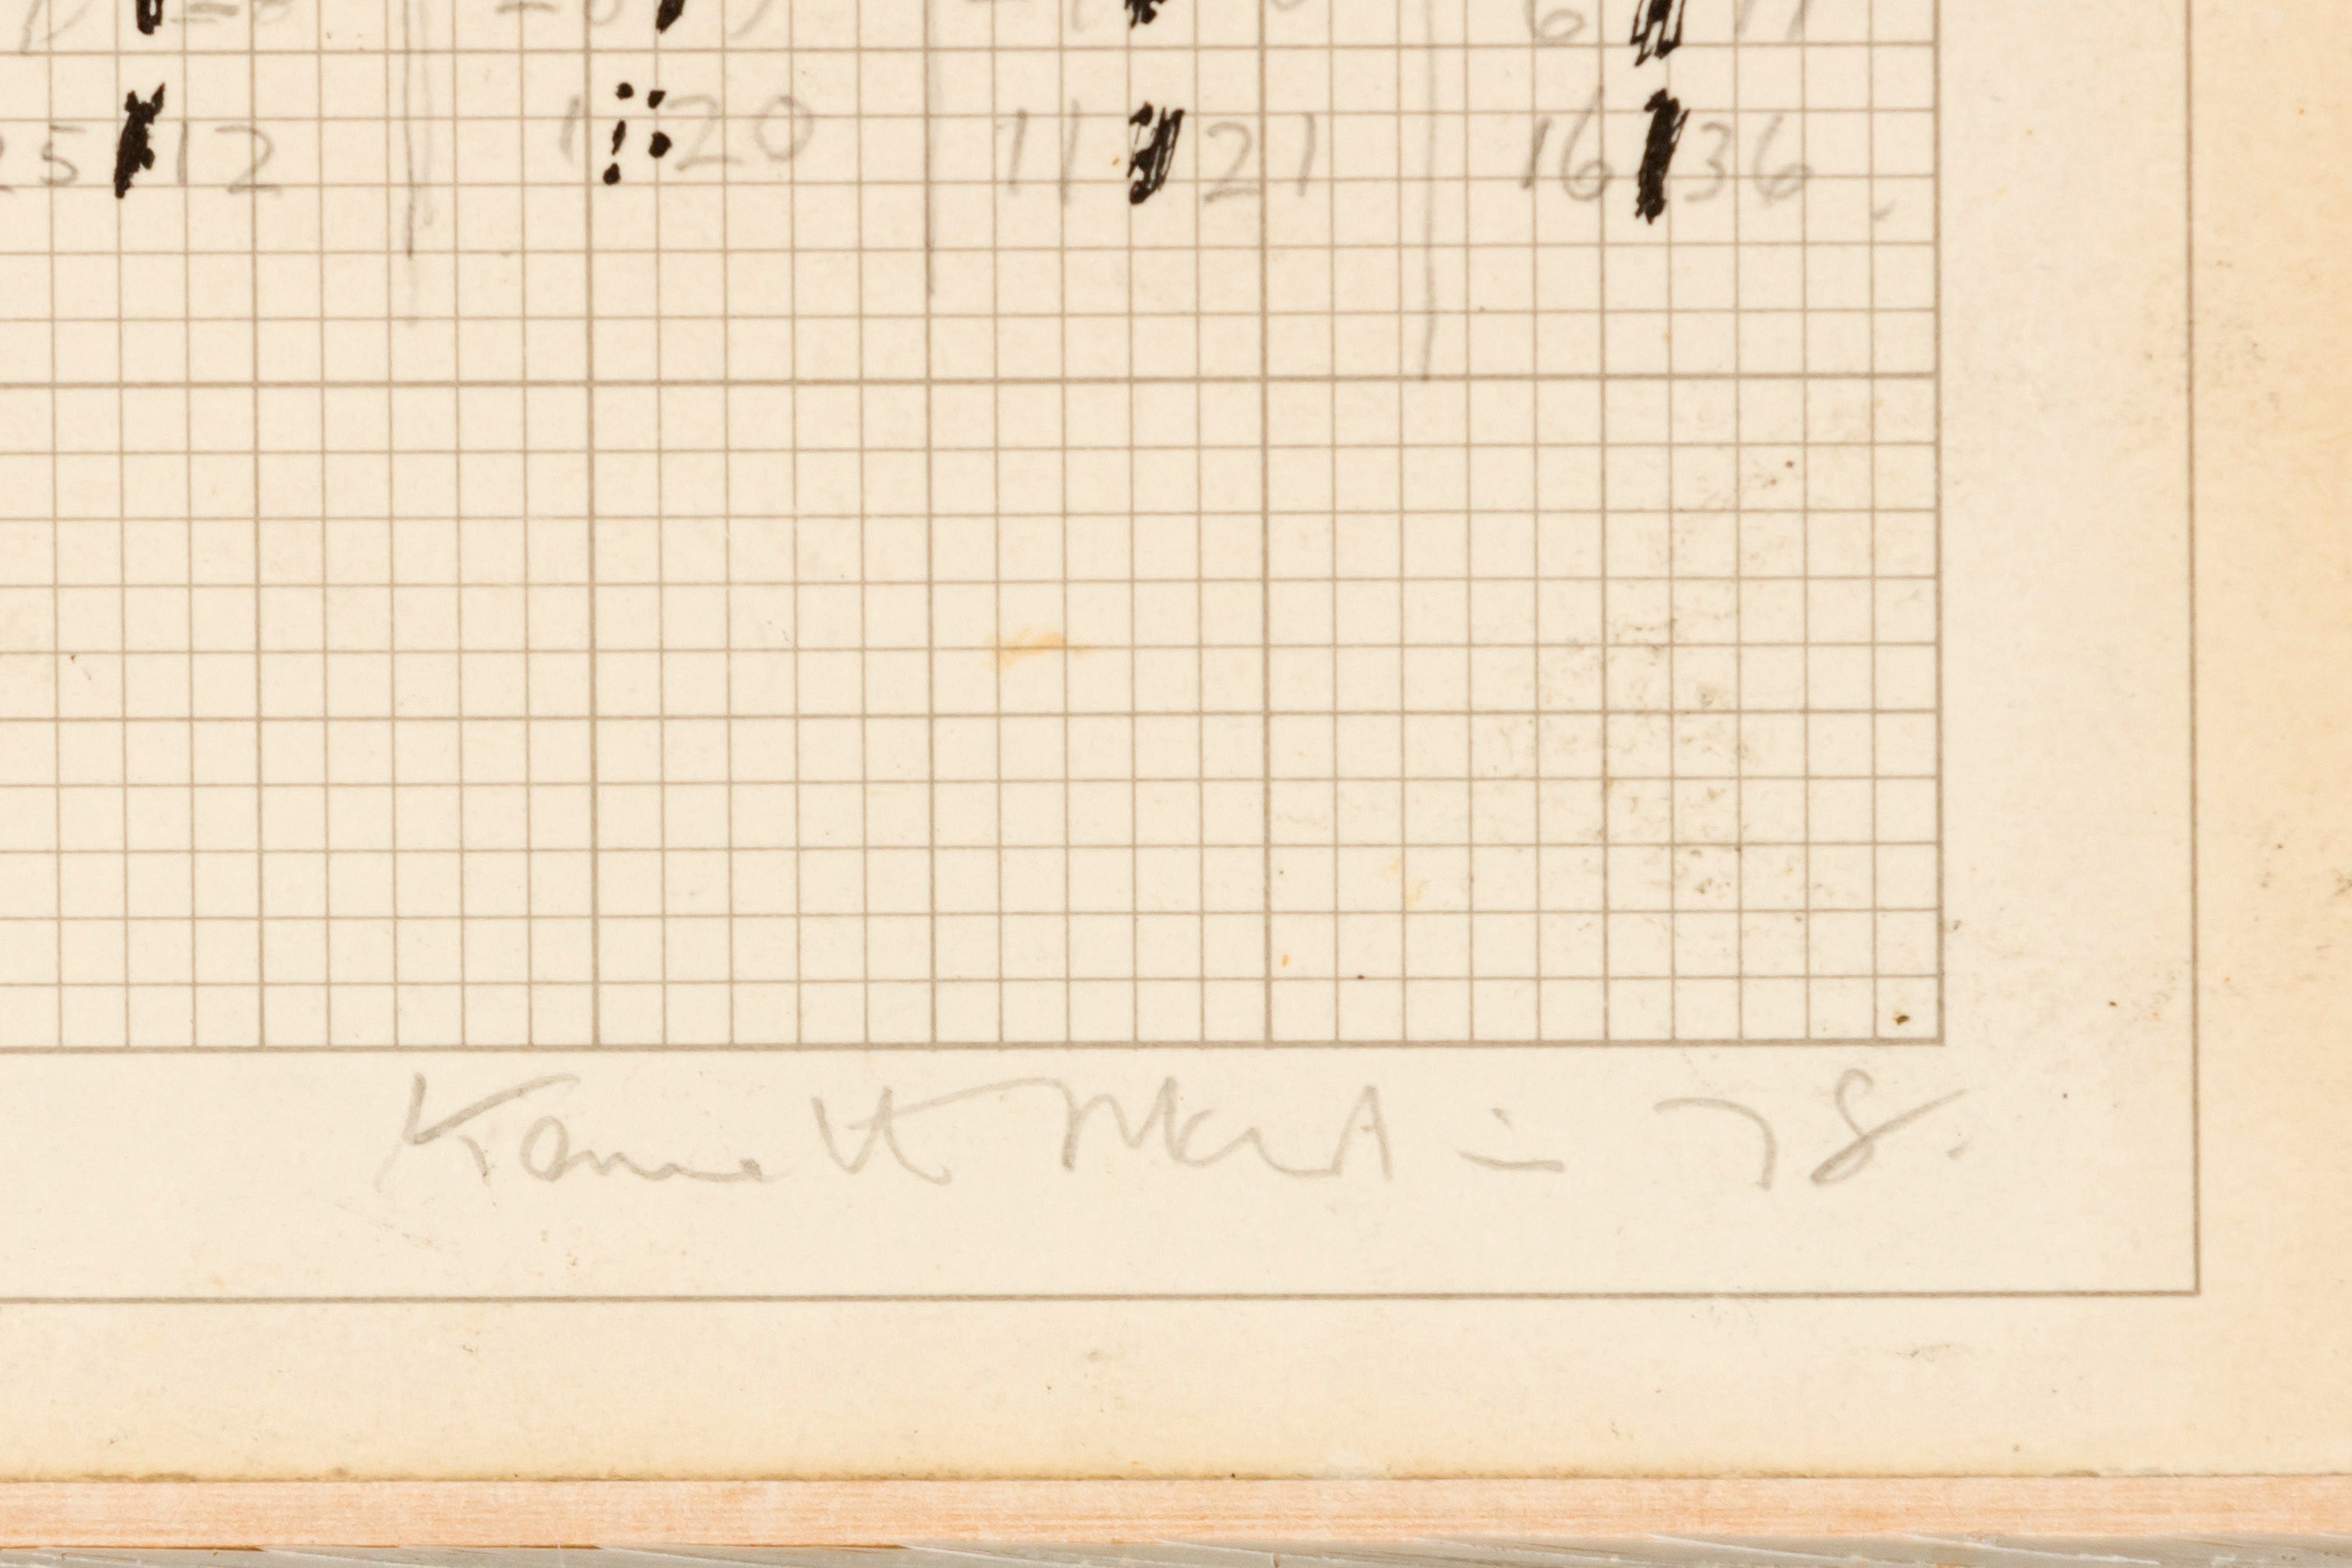 25 12 1 20 11 21 16 36.
Kenneth Martin 78.